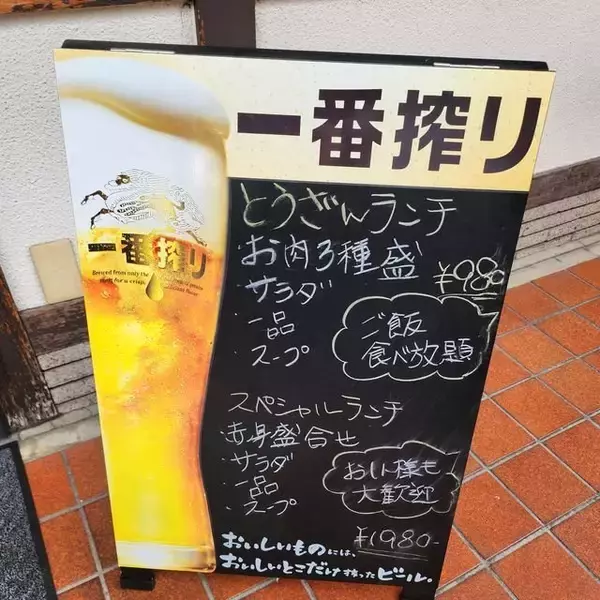 一番搾り
とうざんランチ
・お肉3種盛
・サラダ
・一品
・スープ
¥980
ご飯
食べ放題
スペシャルランチ
・赤身盛合せ
・サラダ
・一品
・スープ
お一人様も
大歓迎
¥1980-
おいしいものには、
おいしいとこだけ搾ったビール。
一番搾り